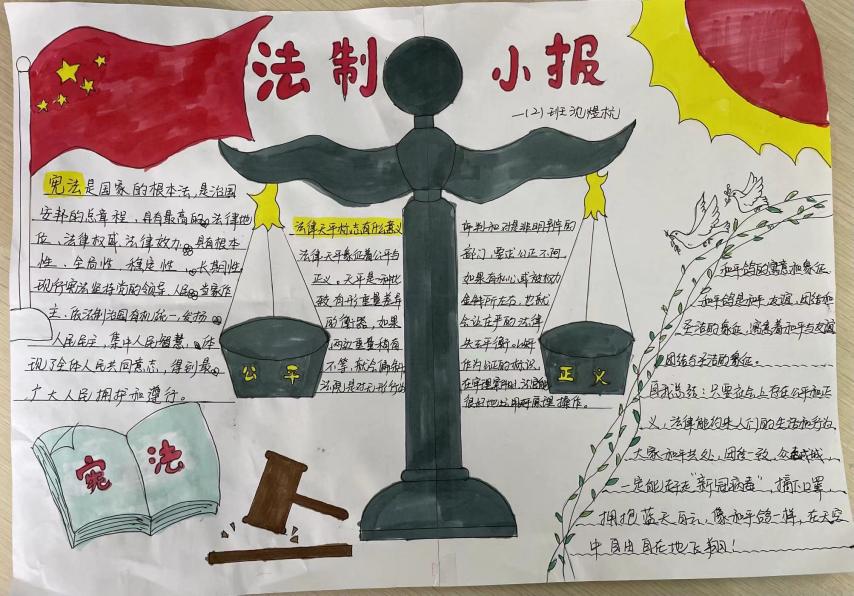 法制小报
一(2)班沈煜杭
宪法是国家的根本法,是治国
安邦的总章程,具有最高的法律地
位、法律权威、法律效力,具有根本
性、全局性、稳定性、长期性。
现行宪法坚持党的领导、人民当家作
主、依法治国有机统一,发扬
人民民主,集中人民智慧,体
现了全体人民共同意志,得到最
广大人民拥护和遵行。
法律天平标志有什么意义
法律天平象征着公平与
正义,天平是一种比
较有形重量差异
的衡器,如果
两边重量稍有
不等,就会偏斜
法院是对无形行为
审判和对是非明辨的
部门,要求公正不阿,
如果有私心或被权力
金钱所左右,也就
会让庄严的法律
失去平衡。以
作为公正的标识,
在审理案件时,法官能
很好地 操作。
公平
正义
和平鸽的寓意和象征
和平鸽是和平、友谊、团结和
圣洁的象征,寓意着和平与友谊
团结与圣洁的象征。
自我总结:只要社会上存在公平和正
义,法律能约束人们的生活和行为,
大家和平共处,团结一致,众志成城
一定能赶走“新冠病毒”,摘下口罩
拥抱蓝天白云,像和平鸽一样,在天空
中自由自在地飞翔!
宪法